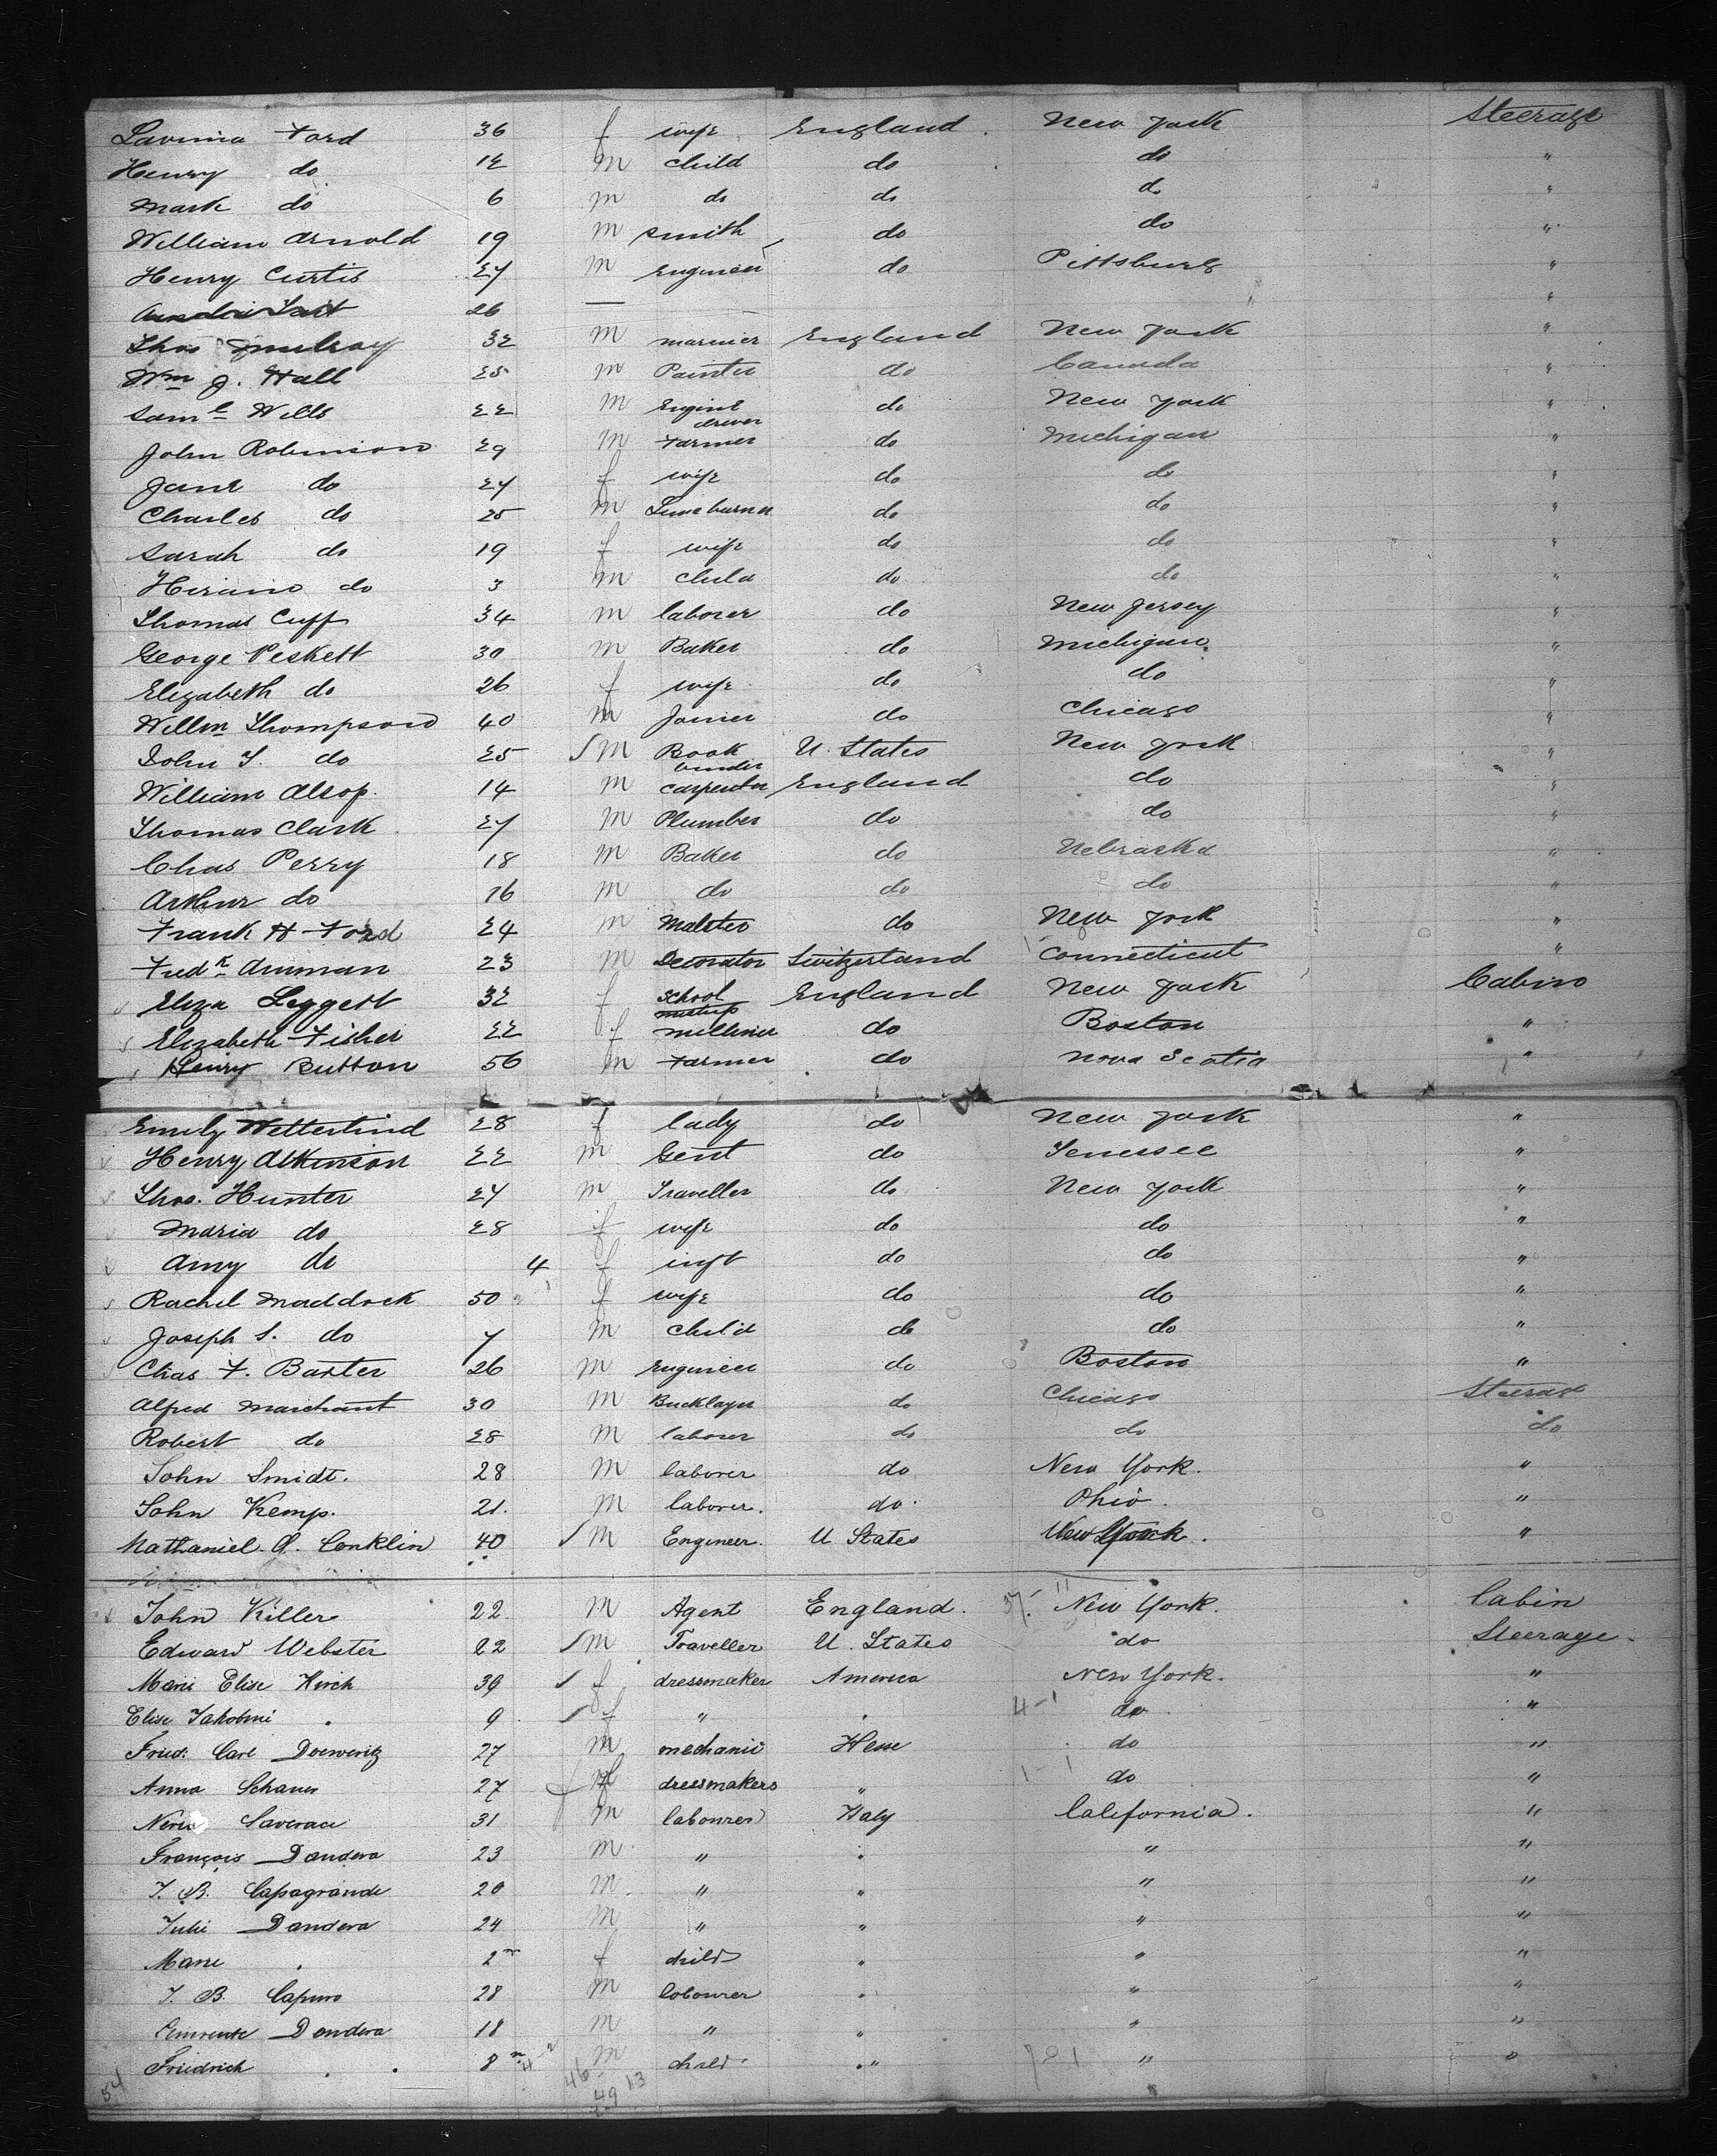 Lavinia Ford 36 f wife England New York Steerage
Henry do 12 m child do do "
Mark do 6 m do do do "
William Arnold 19 m Smith do do "
Henry Curtis 27 m Engineer do Pittsburg "
26 — "
Thos Mulroy 32 m mariner England New York "
Wm J. Hall 25 m Painter do Canada "
Saml Wills 22 m Engine driver do New York "
John Robinson 29 m Farmer do Michigan "
Jane do 27 f wife do do "
Charles do 25 m Lime burner do do "
Sarah do 19 f wife do do "
Hiram do 3 m child do do "
Thomas Cuff 34 m laborer do New Jersey "
George Peskett 30 m Baker do Michigan "
Elizabeth do 26 f wife do do "
Willm Thompson 40 m Joiner do Chicago "
John T. do 25 m Book binder U. States New York "
William Alsop 14 m carpenter England do "
Thomas Clark 27 m Plumber do do "
Chas Perry 18 m Baker do Nebraska "
Arthur do 16 m do do do "
Frank H Ford 24 m Malster do New York "
Fredk Amman 23 m Decorator Switzerland Connecticut "
Eliza Leggett 32 f School England New York Cabin
Elizabeth Fisher 22 f milliner do Boston "
Henry Button 56 m Farmer do Nova Scotia "
Emily Wettertind 28 f lady do New York "
Henry Atkinson 22 m Gent do Tenessee "
Thos. Hunter 27 m Traveller do New York "
Maria do 28 f wife do do "
Amy do 4 f inft do do "
Rachel Maddock 50 f wife do do "
Joseph S. do 7 m child do do "
Chas F. Baxter 26 m Engineer do Boston "
Alfred Marchant 30 m Bricklayer do Chicago Steerage
Robert do 28 m laborer do do do
John Smidt. 28 m laborer do New York. "
John Kemp. 21. m laborer. do. Ohio. "
Nathaniel. A. Conklin 40 m Engineer. U States New York. "
John Killer 22 m Agent England. New York. Cabin
Edward Webster 22 m Traveller U. States do Steerage.
Marie Elise Kirch 39 f dressmaker America New York. "
Elise Jakobini 9 f " do "
Fried. Carl Doerweritz 27 m mechanic Hesse do "
Anna Schauer 27 f dressmakers " do "
Saverau 31 m labourer Italy California. "
François Dandera 23 m " " "
J. B. Capagrande 20 m " " " "
Juli Dandera 24 m " " " "
Marie 2 m f child " " "
J. B. Capuro 28 m labourer " "
Dandera 18 m " " " "
Friedrich 8 m m child " " "
54 46 49 13